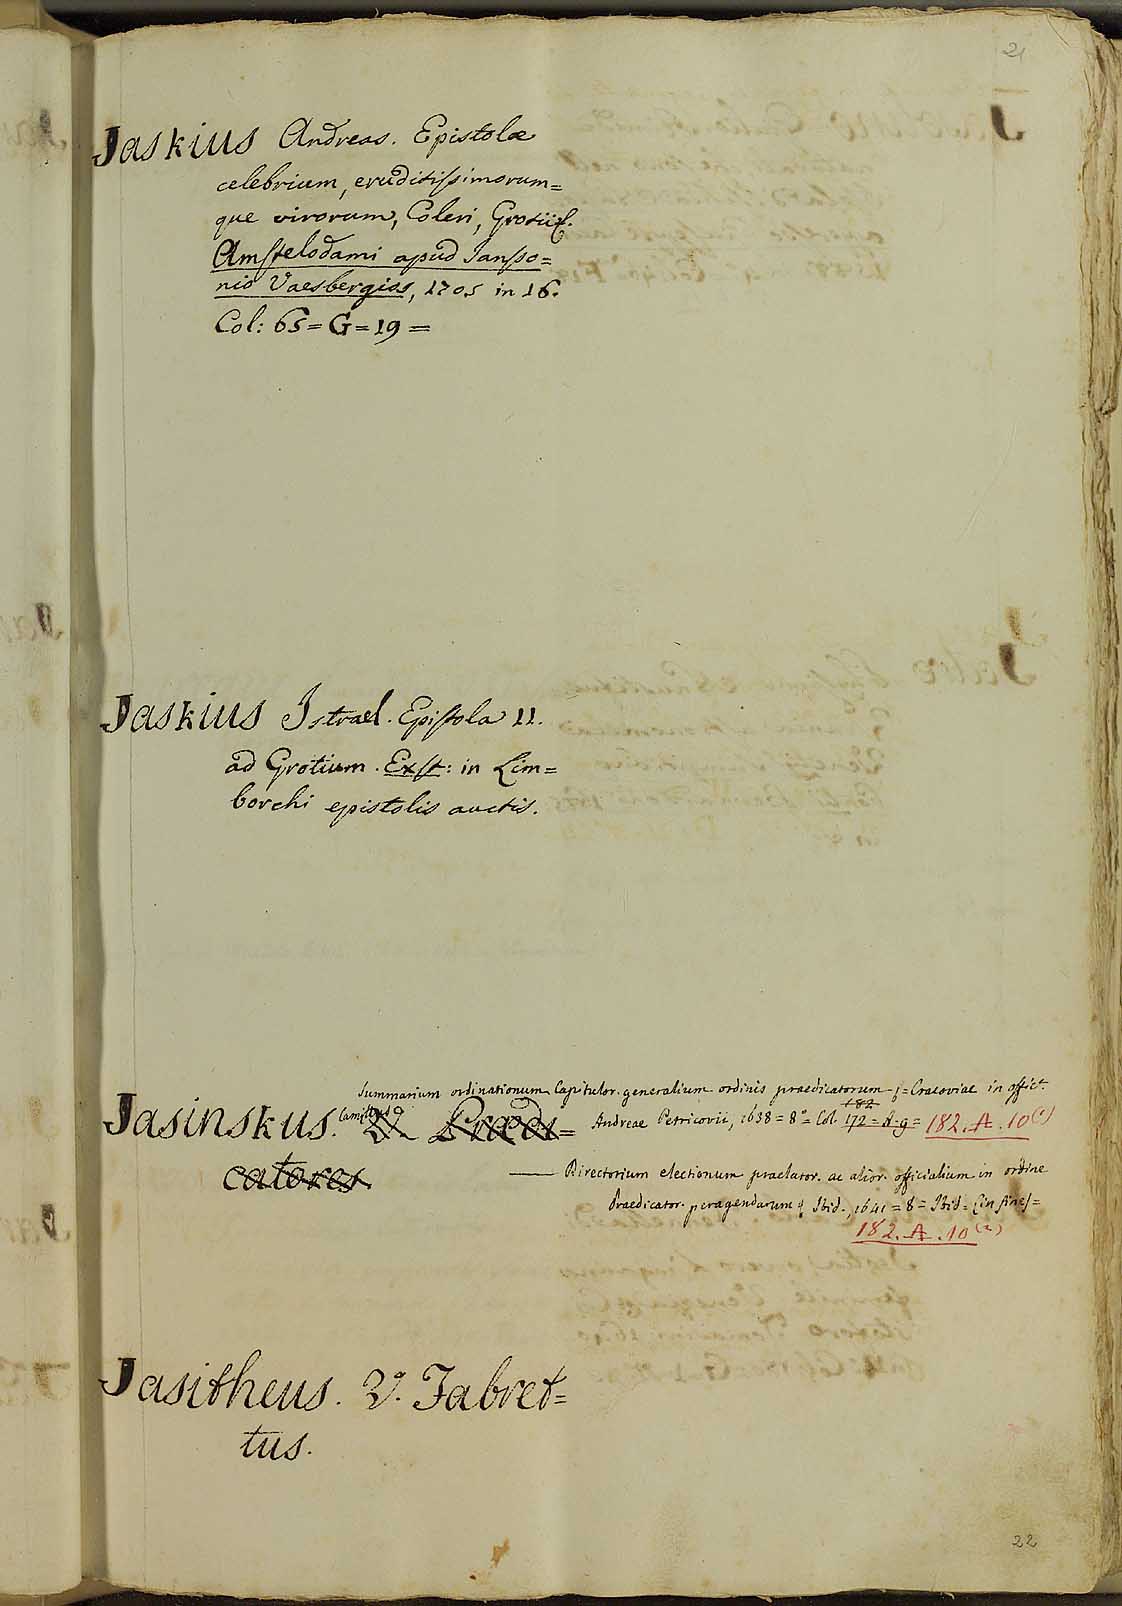 21
Jaskius Andreas. Epistolæ
celebrium, eruditissimorum=
que virorum, Coleri, Grotii &.
Amstelodami apud Jansso=
nio Vaesbergios, 1705 in 16.
Col: 65 = G = 19 =
Jaskius Istrael. Epistola 11.
ad Grotium. Exst: in Lim=
borchi epistolis auctis.
Summarium ordinationum Capitulor. generalium ordinis praedicatorum = Cracoviae in offict.
Jasinskus. Camillus Vº. Prædi=
182
Andreae Petricovii, 1638 = 8º = Col. 172 = A. 9 = 182. A. 10 (1)
catores.
Directorium electionum praelator. ac alior. officialium in ordine
Praedicator. peragendarum & Ibid., 1641 = 8 = Ibid = (in fine) =
182. A. 10 (2)
Jasitheus. Vº. Fabret=
tus.
22